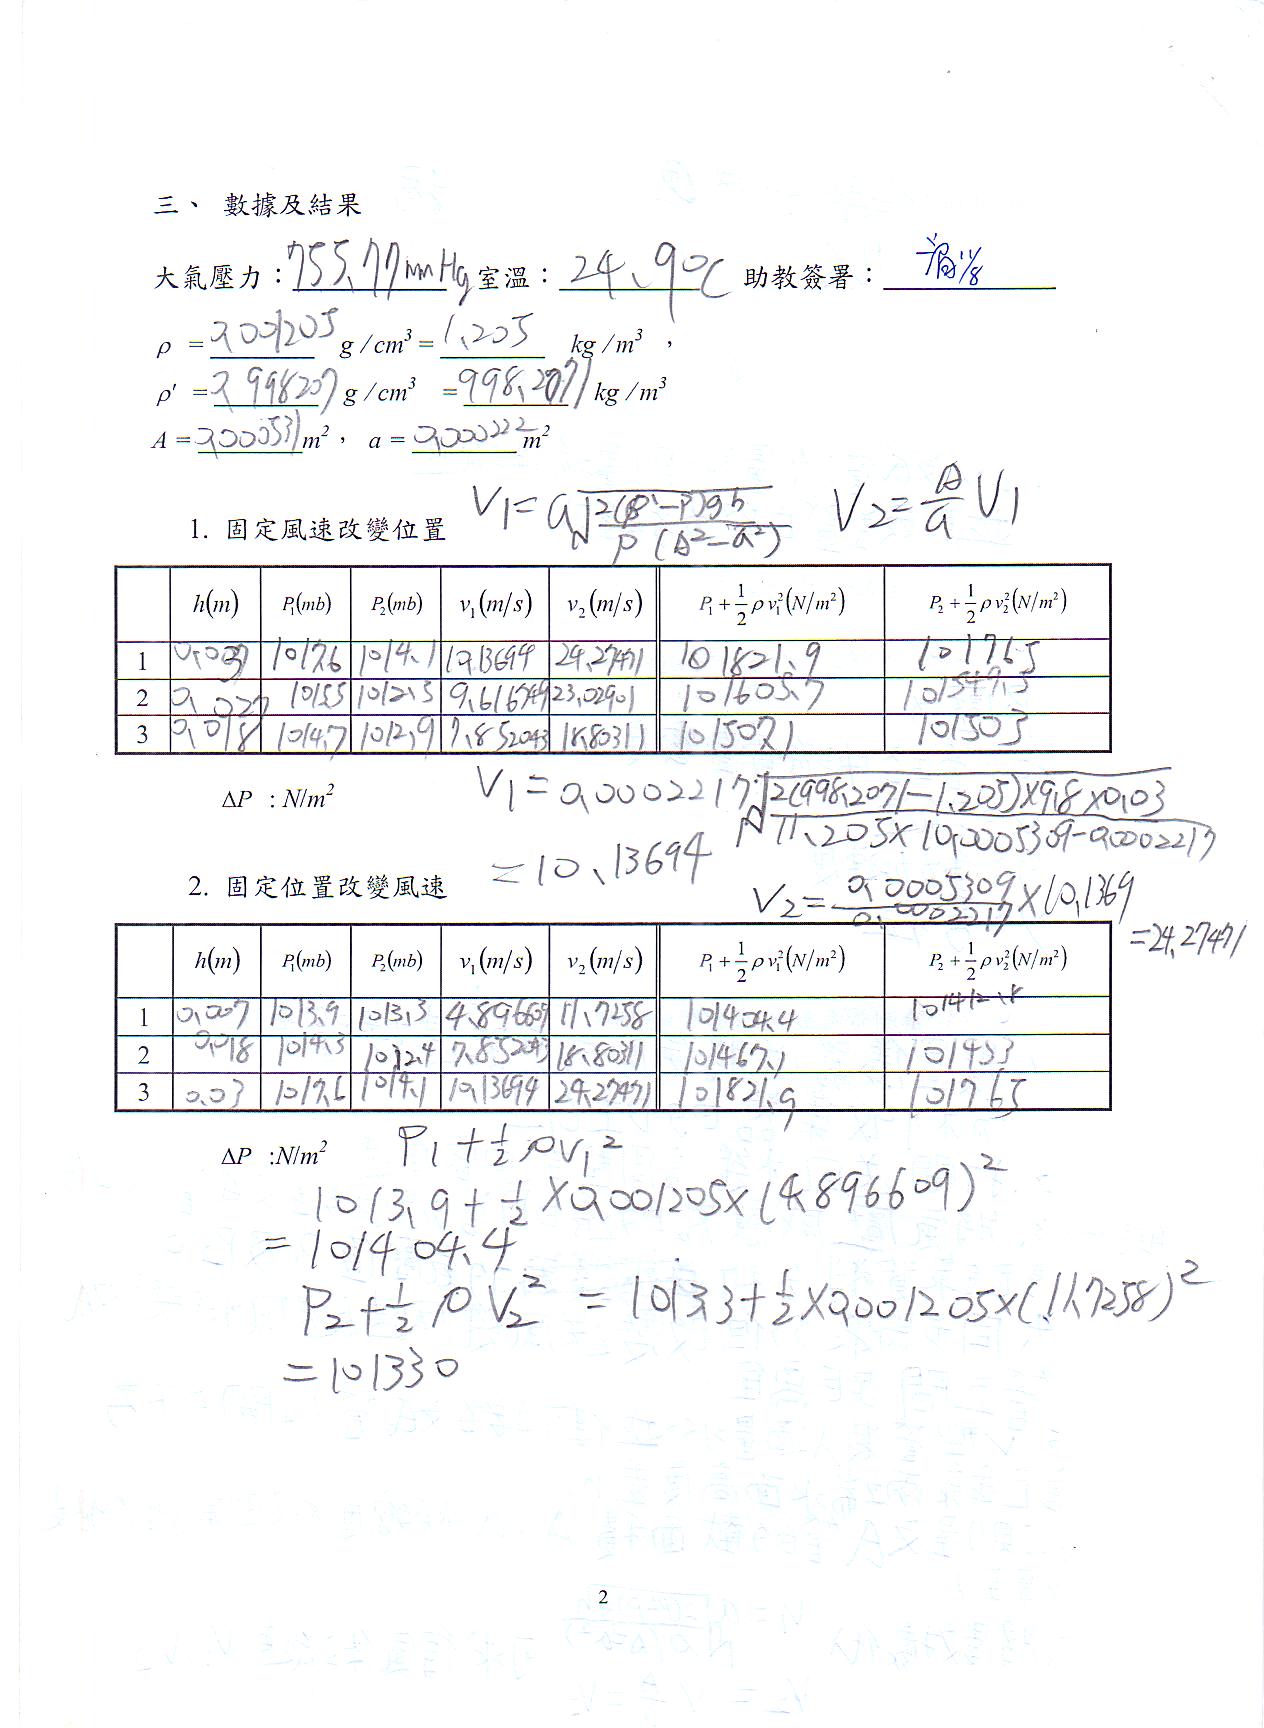 三、 數據及結果
大氣壓力：755.77mmHg 室溫：24.9℃ 助教簽署：
ρ = 0.001205 g/cm³ = 1.205 kg/m³ ，
ρ' = 0.998207 g/cm³ = 998.2071 kg/m³
A = 0.000531 m²， a = 0.000222 m²
V1 = a√(2(ρ'-ρ)gh / ρ(A²-a²)) V2 = A/a V1
1. 固定風速改變位置
h(m) P₁(mb) P₂(mb) v₁(m/s) v₂(m/s) P₁+½ρv₁²(N/m²) P₂+½ρv₂²(N/m²)
1 0.03 1017.6 1014.1 10.13694 24.27471 101821.9 101765
2 0.027 1015.5 1012.3 9.616749 23.02901 101605.7 101549.5
3 0.018 1014.7 1012.9 7.852043 18.80311 101507.1 101503
ΔP : N/m²
V1 = 0.0002217√(2(998.2071-1.205)×9.8×0.03 / 1.205×(0.0005309-0.0002217
= 10.13694
2. 固定位置改變風速
V2 = 0.0005309/0.0002217 × 10.1369
= 24.27471
h(m) P₁(mb) P₂(mb) v₁(m/s) v₂(m/s) P₁+½ρv₁²(N/m²) P₂+½ρv₂²(N/m²)
1 0.007 1013.9 1013.3 4.896609 11.7258 101404.4 101412.8
2 0.018 1014.3 1012.4 7.852043 18.80311 101467.1 101453
3 0.03 1017.6 1014.1 10.13694 24.27471 101821.9 101765
ΔP :N/m²
P1+½ρV1²
1013.9+½×0.001205×(4.896609)²
=101404.4
P2+½ρV2² = 1013.3+½×0.001205×(11.7258)²
=101330
2